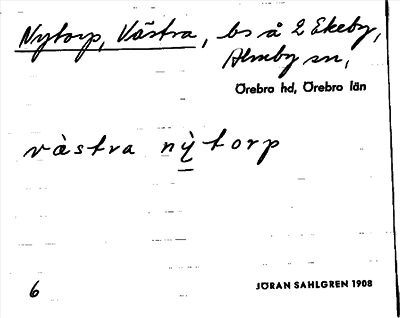 Nytorp, Västra, bs å 2 Ekeby,
Almby sn,
Örebro hd, Örebro län
vàstra nỳtorp
6
JÖRAN SAHLGREN 1908